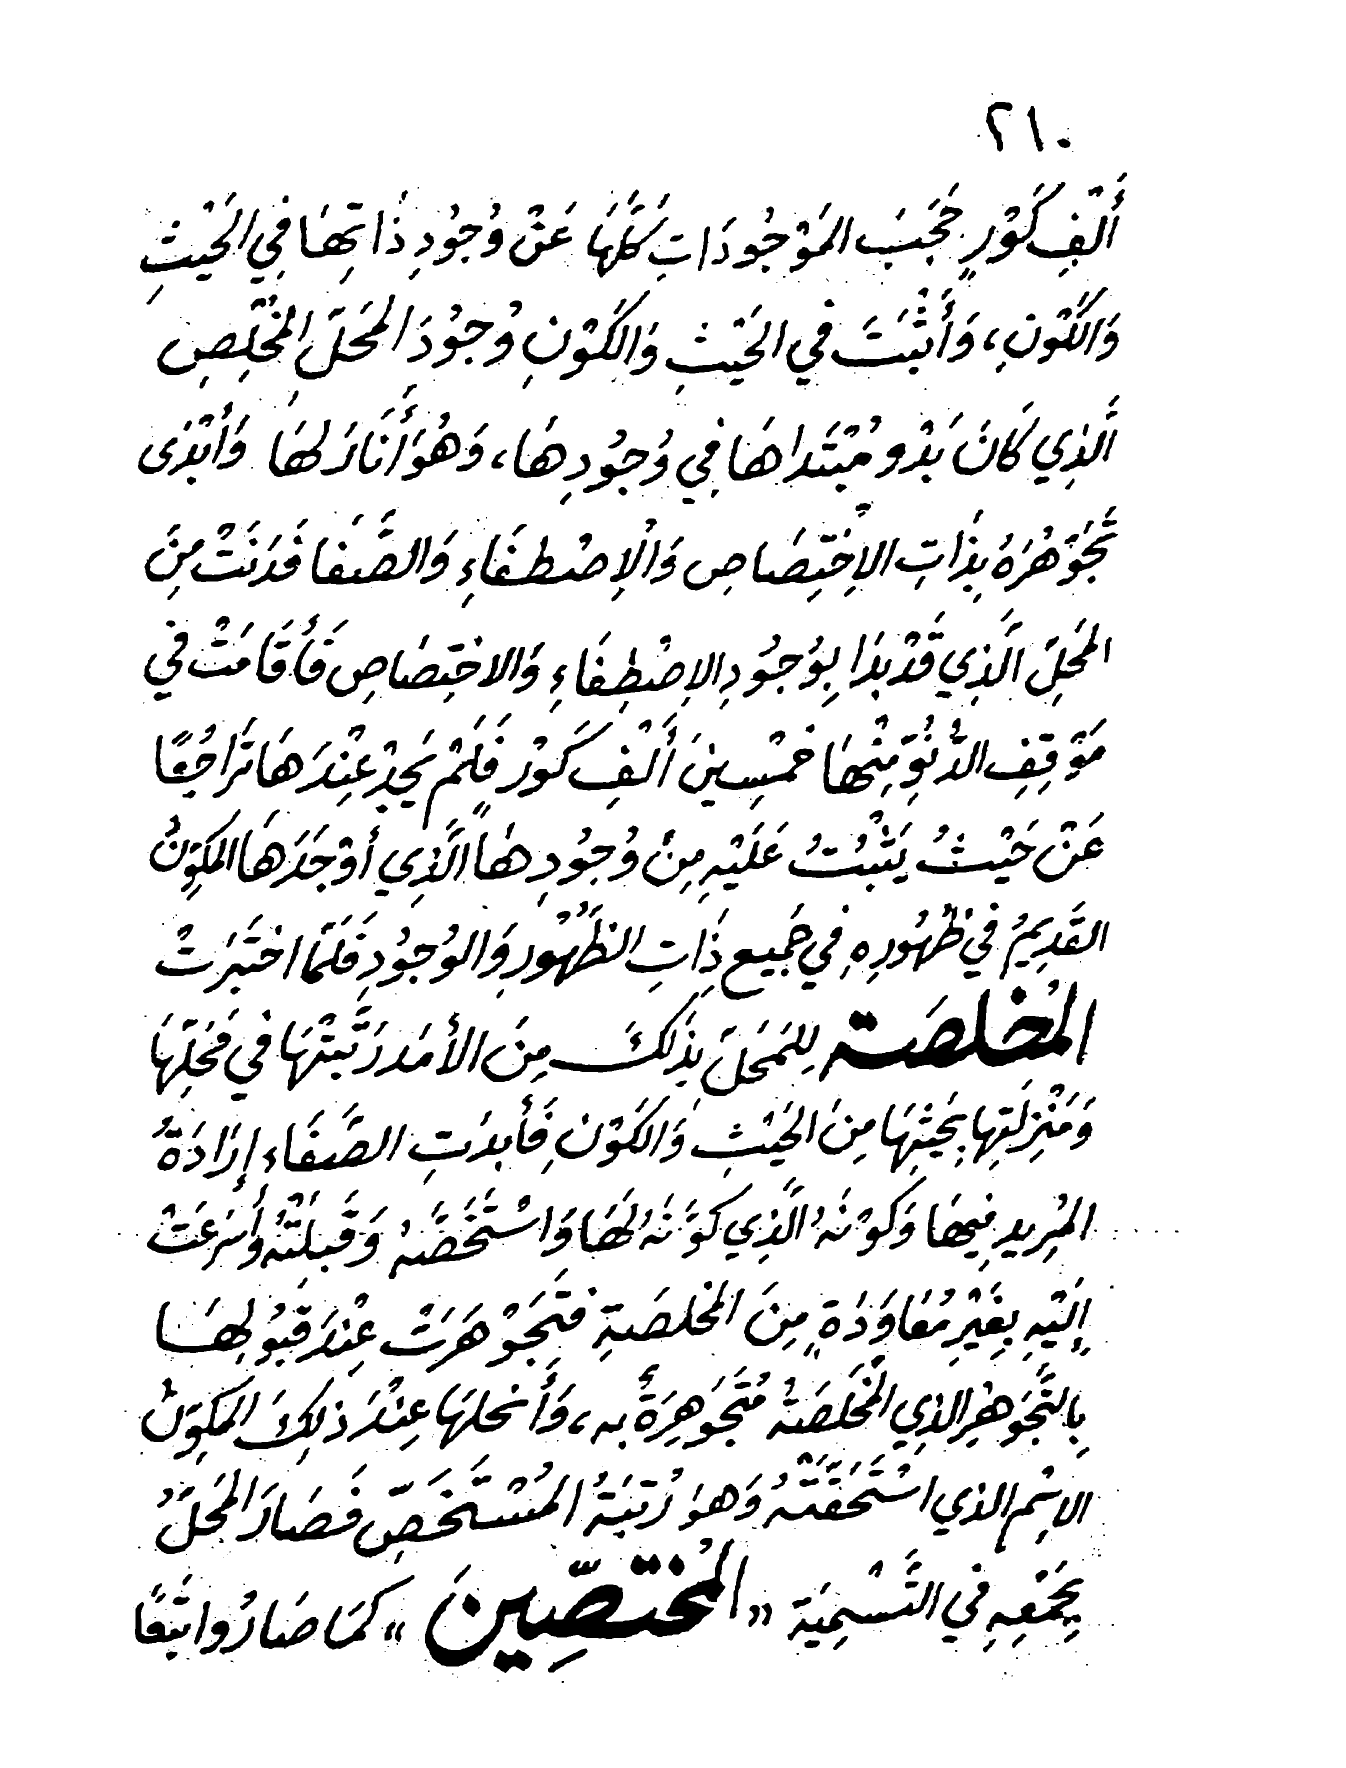 ٢١٠
أَلْفِ كَوْرٍ حَجَبَ المَوْجُودَاتِ كُلَّهَا عَنْ وُجُودِ ذَاتِهَا فِي الحَيْثِ
وَالكَوْنِ، وَأَثْبَتَ فِي الحَيْثِ وَالكَوْنِ وُجُودَ المَحَلِّ المُخْلِصِ
الَّذِي كَانَ بَدْو مُبْتَداهَا فِي وُجُودِهَا، وَهُوَ أَنَارَ لَهَا وَأَبْدَى
تَجَوْهُرَهُ بِذَاتِ الاِخْتِصَاصِ وَالْاِصْطِفَاءِ وَالصَّفَا فَدَنَتْ مِنَ
المَحَلِّ الَّذِي قَدْ بَدَا بِوُجُودِ الاِصْطِفَاءِ وَالاخْتِصَاصِ فَأَقَامَتْ فِي
مَوْقِفِ الدُّنُوِّ مِنْهَا خَمْسِينَ أَلْفِ كَوْرٍ فَلَمْ يَجِدْ عِنْدَهَا تَرَاجُعًا
عَنْ حَيْثُ يَثْبُتُ عَلَيْهِ مِنْ وُجُودِهَا الَّذِي أَوْجَدَهَا المُكَوِّنُ
القَدِيمُ فِي ظُهُورِهِ فِي جَمِيعِ ذَاتِ الظُّهُورِ وَالوُجُودِ فَلَمَّا اخْتَبَرَتْ
المُخْلِصَة لِلمَحَلِّ بِذَلِكَ مِنَ الأَمَدِ رَتَّبَتْهَا فِي مَحَلِّهَا
وَمَنْزِلَتِهَا بِحَيْثِهَا مِنَ الحَيْثِ وَالكَوْنِ فَأَبدَتِ الصَّفَاءِ إِرَادَةُ
المُرِيدِ فِيهَا وَكَوْنَهُ الَّذِي كَوَّنَهُ لَهَا وَاسْتَخَصَّهُ وَقَبِلَتْهُ وأَسْرَعَتْ
إِلَيْهِ بِغَيْرِ مُعَاوَدَةٍ مِنَ المُخلصَةِ فَتَجَوْهَرَتْ عِنْدَ قَبُولِهَا
بِالتَّجَوْهُرِ الذِي المُخْلَصَةُ مُتَجَوْهِرَةٌ بِه، وَأَنحلهَا عِنْدَ ذلِكَ المُكَوِّنُ
الاِسْم الذي اسْتَحَقَّتْهُ وَهوَ رُتبَةُ المُسْتَخَصِّ فَصَارَ المَحَلُّ
بِجَمْعِهِ فِي التَّسْمِيَة «المُختَصِّينَ» كَمَا صَارُوا تَبَعًا